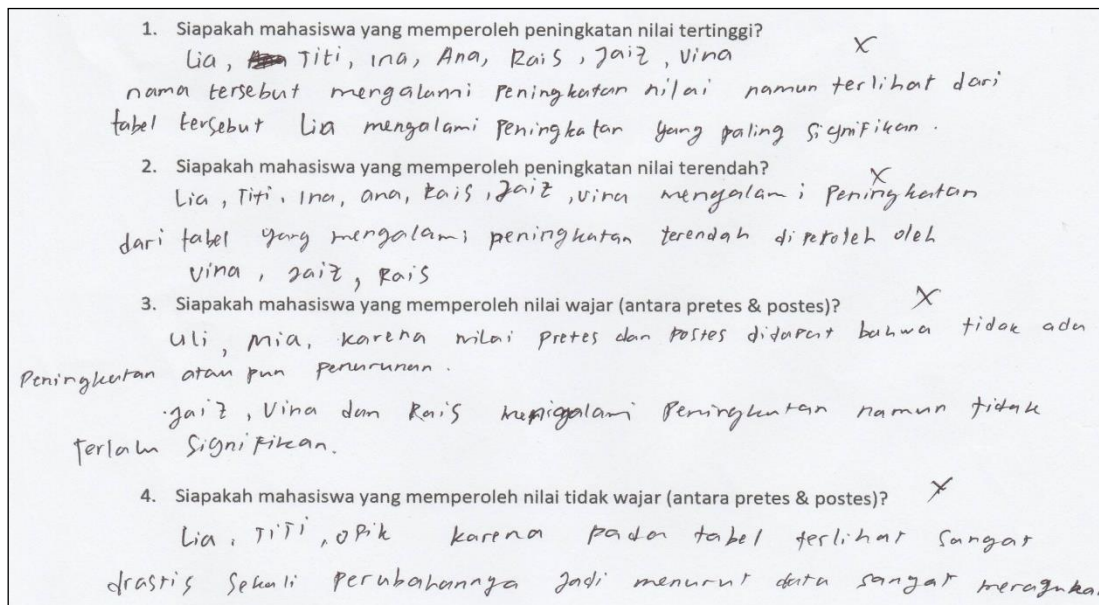 1. Siapakah mahasiswa yang memperoleh peningkatan nilai tertinggi?
Lia, Titi, Ina, Ana, Rais, Jaiz, Vina X
nama tersebut mengalami peningkatan nilai namun terlihat dari
tabel tersebut Lia mengalami peningkatan yang paling signifikan.
2. Siapakah mahasiswa yang memperoleh peningkatan nilai terendah? X
Lia, Titi, Ina, ana, Rais, Jaiz, vina mengalami peningkatan
dari tabel yang mengalami peningkatan terendah diperoleh oleh
vina, Jaiz, Rais
3. Siapakah mahasiswa yang memperoleh nilai wajar (antara pretes & postes)? X
Uli, Mia, karena nilai pretes dan postes didapat bahwa tidak ada
Peningkatan atau pun penurunan.
Jaiz, Vina dan Rais mengalami Peningkatan namun tidak
terlalu signifikan.
4. Siapakah mahasiswa yang memperoleh nilai tidak wajar (antara pretes & postes)? X
Lia, TiTi, OPik karena pada tabel terlihat sangat
drastis sekali perubahannya Jadi menurut data sangat meragukan